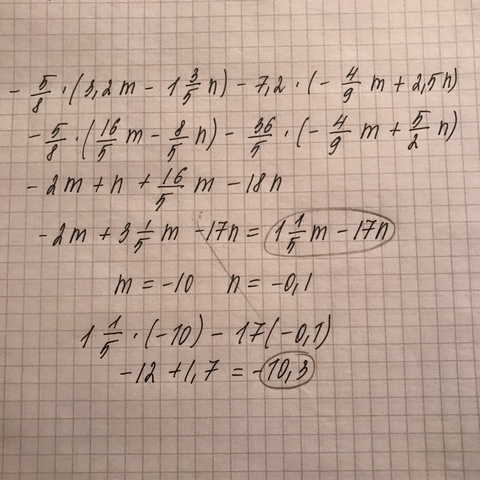 - 5/8 · (3,2m - 1 3/5 n) - 7,2 · (- 4/9 m + 2,5n)
- 5/8 · (16/5 m - 8/5 n) - 36/5 · (- 4/9 m + 5/2 n)
- 2m + n + 16/5 m - 18n
- 2m + 3 1/5 m - 17n = 1 1/5 m - 17n
m = -10 n = -0,1
1 1/5 · (-10) - 17(-0,1)
-12 + 1,7 = -10,3